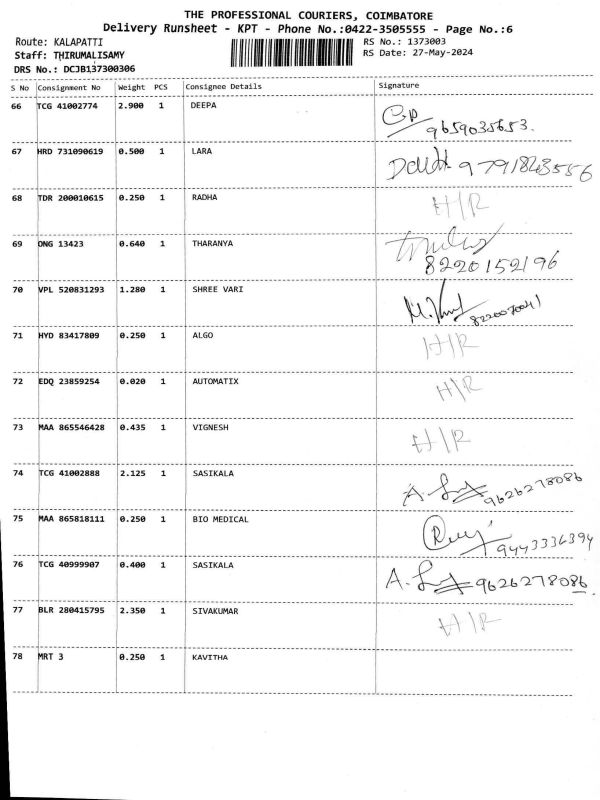 THE PROFESSIONAL COURIERS, COIMBATORE
Delivery Runsheet - KPT - Phone No.:0422-3505555 - Page No.:6
Route: KALAPATTI
RS No.: 1373003
Staff: THIRUMALISAMY
RS Date: 27-May-2024
DRS No.: DCJB137300306
S No Consignment No Weight PCS Consignee Details Signature
66 TCG 41002774 2.900 1 DEEPA
9659035653.
67 HRD 731090619 0.500 1 LARA
68 TDR 200010615 0.250 1 RADHA H/R
69 ONG 13423 0.640 1 THARANYA
8220152196
70 VPL 520831293 1.280 1 SHREE VARI
71 HYD 83417809 0.250 1 ALGO H/R
72 EDQ 23859254 0.020 1 AUTOMATIX H/R
73 MAA 865546428 0.435 1 VIGNESH H/R
74 TCG 41002888 2.125 1 SASIKALA 9626278086
75 MAA 865818111 0.250 1 BIO MEDICAL 9443336394
76 TCG 40999907 0.400 1 SASIKALA 9626278086
77 BLR 280415795 2.350 1 SIVAKUMAR H/R
78 MRT 3 0.250 1 KAVITHA